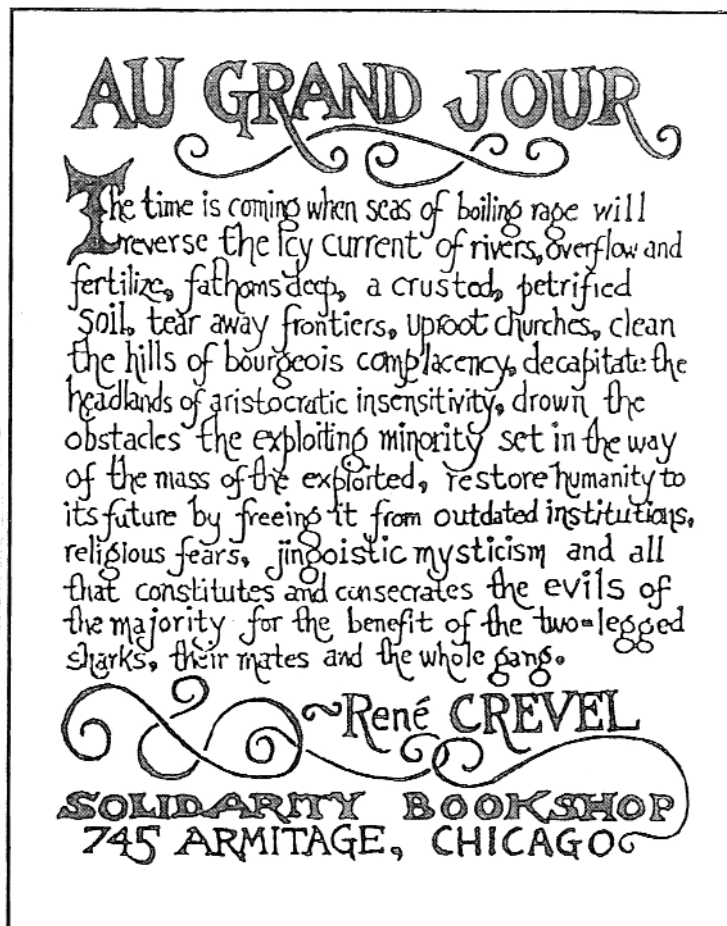 AU GRAND JOUR
The time is coming when seas of boiling rage will
reverse the icy current of rivers, overflow and
fertilize, fathoms deep, a crusted, petrified
soil, tear away frontiers, uproot churches, clean
the hills of bourgeois complacency, decapitate the
headlands of aristocratic insensitivity, drown the
obstacles the exploiting minority set in the way
of the mass of the exploited, restore humanity to
its future by freeing it from outdated institutions,
religious fears, jingoistic mysticism and all
that constitutes and consecrates the evils of
the majority for the benefit of the two-legged
sharks, their mates and the whole gang.
~René CREVEL
SOLIDARITY BOOKSHOP
745 ARMITAGE, CHICAGO